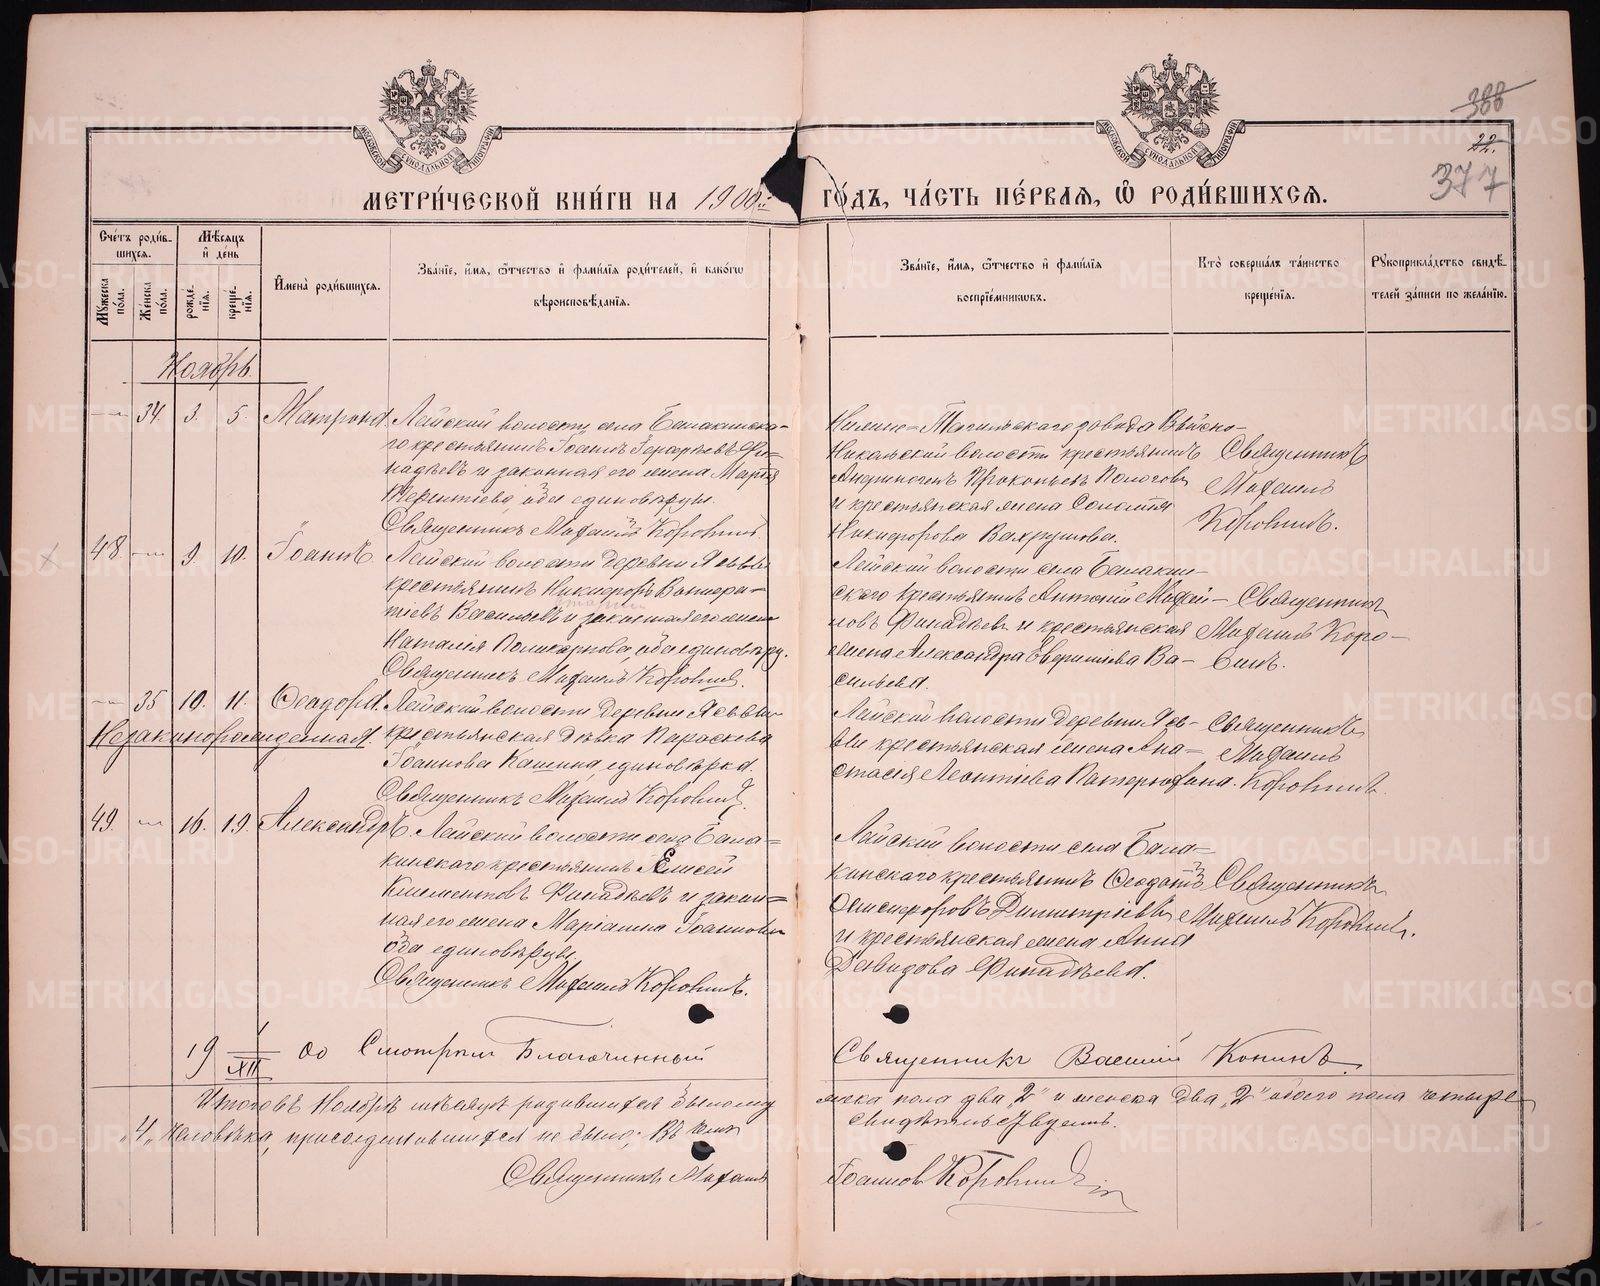 388
22.
377
МЕТРИ́ЧЕСКОЙ КНИ́ГИ НА 1900й ГО́ДЪ, ЧА́СТЬ ПЕ́РВАЯ, Ѽ РОДИ́ВШИХСЯ.
Сче́тъ роди́в-
шихся.
Мѣ́сяцъ
и҆ де́нь
Мꙋ́жеска по́ла.
Же́нска по́ла.
рожде́-
нїя.
креще́-
нїя.
И҆мена̀ роди́вшихся.
Зва́нїе, и҆́мя, ѻ҆́тчество и҆ фами́лїя роди́телей, и҆ како́гѡ
вѣроисповѣ́данїя.
Зва́нїе, и҆́мя, ѻ҆́тчество и҆ фами́лїя
воспрїе́мникѡвъ.
Кто̀ соверша́лъ та́инство
креще́нїя.
Рꙋкоприкла́дство свидѣ́-
телей за́писи по жела́нїю.
Ноябрь.
34. 3. 5. Матрона.
Лайской волости села Балакинска-
го крестьянинъ Іоаннъ
надѣевъ и законная его жена Марѳа
Терентіева, оба единовѣрцы.
Священникъ Михаилъ Коровинъ.
Нижне-Тагильскаго завода Выйско-
Никольской волости крестьянинъ
Прокопьевъ
и крестьянская жена Соломія
Никифорова Вахрушева.
Священникъ
Михаилъ
Коровинъ.
48. 9. 10. Іоаннъ
Лайской волости деревни
крестьянинъ Никифоръ
Васильевъ и законная его жена
Наталія Поликарпова, оба единовѣрцы.
Священникъ Михаилъ Коровинъ.
Лайской волости села Балакин-
скаго крестьянинъ Антоній Михай-
ловъ Финадѣевъ и крестьянская
жена Александра Ва-
сильева.
Священникъ
Михаилъ Коро-
винъ.
35 10. 11. Ѳеодора.
Незаконорожденная.
Лайской волости деревни
крестьянская дѣвка Параскева
Іоаннова Кашина, единовѣрка.
Священникъ Михаилъ Коровинъ.
Лайской волости деревни
крестьянская жена Ана-
стасія Леонтіева
Священникъ
Михаилъ
Коровинъ.
49. 16. 19. Александръ.
Лайской волости села Бала-
кинскаго крестьянинъ Елисей
Климентовъ Финадѣевъ и закон-
ная его жена Маріанна Іоаннова
оба единовѣрцы.
Священникъ Михаилъ Коровинъ.
Лайской волости села Бала-
кинскаго крестьянинъ Ѳеодотъ
Димитріевъ
и крестьянская жена Анна
Давидова Финадѣева.
Священникъ
Михаилъ Коровинъ.
19 1/XII 00 Смотрѣлъ Благочинный Священникъ Василій Конинъ.
Итого въ Ноябрѣ мѣсяцѣ родившихся было мужеска пола два „2" и женска два „2" обоего пола четыре
„4" человѣка, присоединившихся не было; въ чемъ свидѣтельствуемъ.
Священникъ Михаилъ Іоанновъ Коровинъ
METRIKI.GASO-URAL.RU